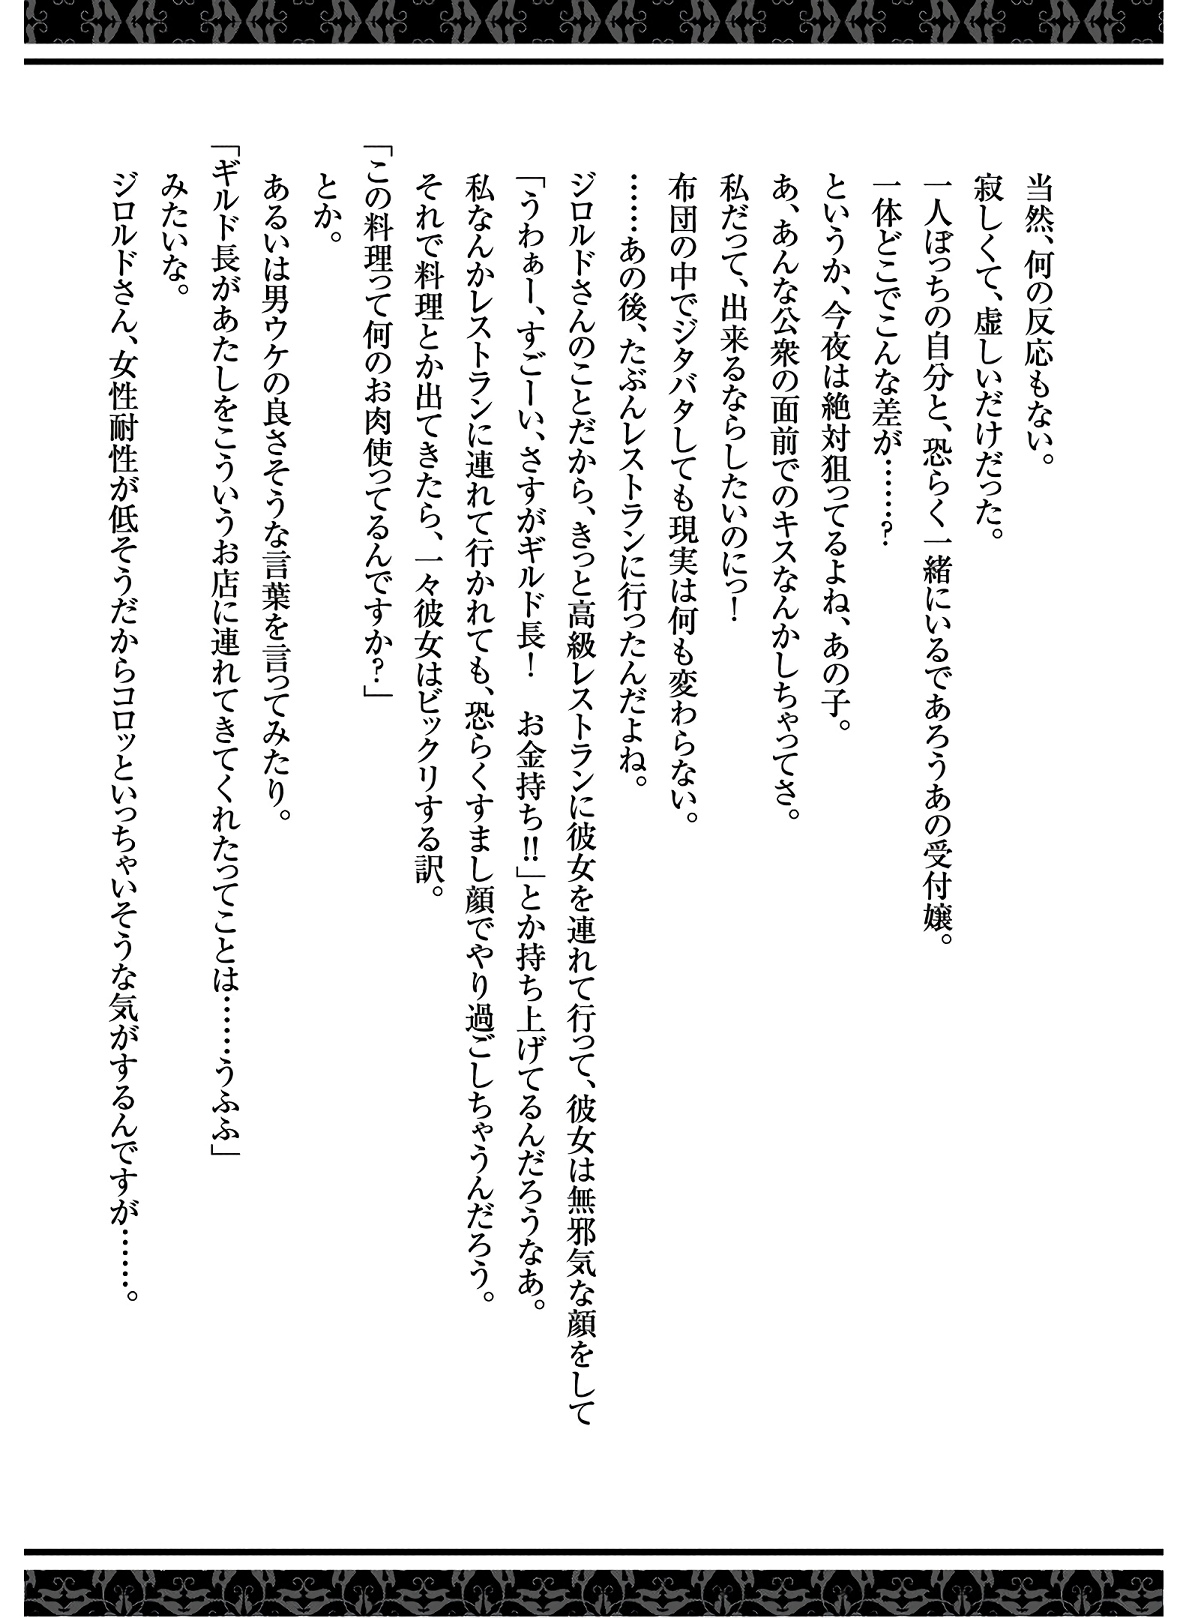 当然、何の反応もない。
寂しくて、虚しいだけだった。
一人ぼっちの自分と、恐らく一緒にいるであろうあの受付嬢。
一体どこでこんな差が……？
というか、今夜は絶対狙ってるよね、あの子。
あ、あんな公衆の面前でのキスなんかしちゃってさ。
私だって、出来るならしたいのにっ！
布団の中でジタバタしても現実は何も変わらない。
……あの後、たぶんレストランに行ったんだよね。
ジロルドさんのことだから、きっと高級レストランに彼女を連れて行って、彼女は無邪気な顔をして
「うわぁー、すごーい、さすがギルド長！　お金持ち!!」とか持ち上げてるんだろうなあ。
私なんかレストランに連れて行かれても、恐らくすまし顔でやり過ごしちゃうんだろう。
それで料理とか出てきたら、一々彼女はビックリする訳。
「この料理って何のお肉使ってるんですか？」
とか。
あるいは男ウケの良さそうな言葉を言ってみたり。
「ギルド長があたしをこういうお店に連れてきてくれたってことは……うふふ」
みたいな。
ジロルドさん、女性耐性が低そうだからコロッといっちゃいそうな気がするんですが……。